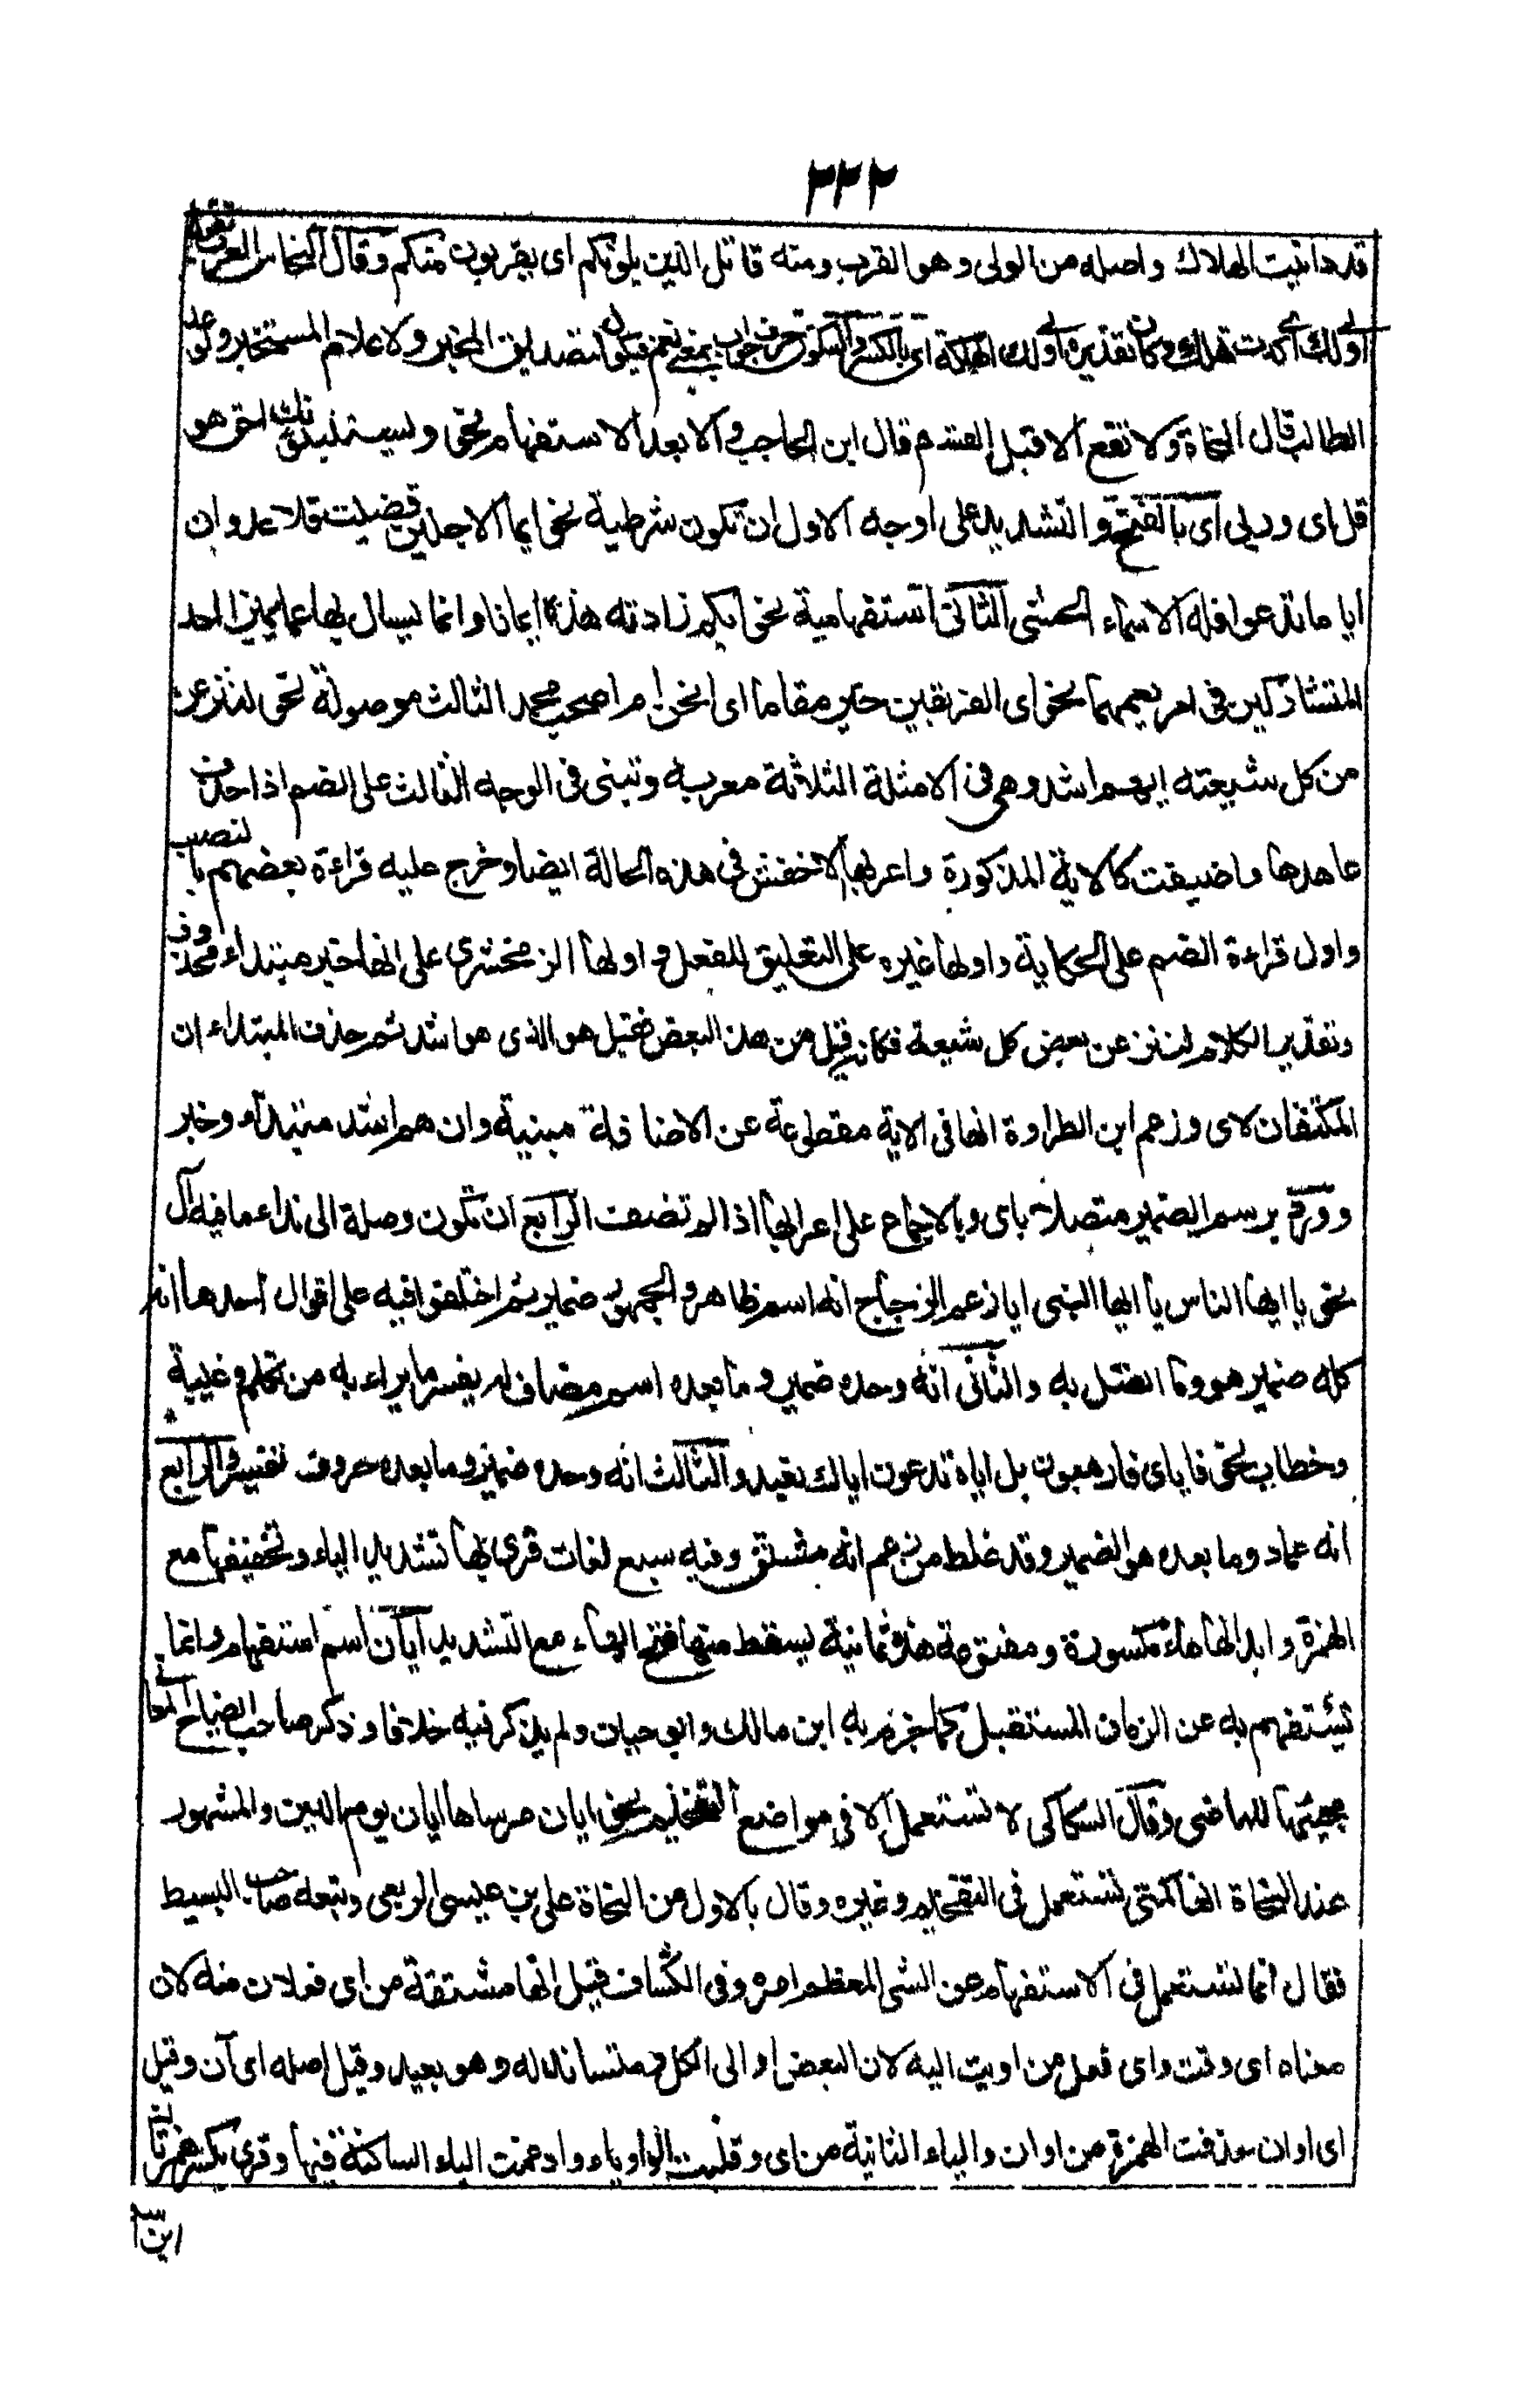 ٢٣٢
قد دانيت الهلاك واصله من الولى وهو القرب ومنه قاتل الذين يلونكم اى يقربون منكم وقال النحاس العرب تقول
اولى لك اى كدت تهلك وكان تقديره اولى لك الهلكة اى بالكسر والسكون حرف جواب بمعنى نعم فيكون لتصديق المخبر ولاعلام المستخبر ولوعد
الطالب قال النحاة ولا تقع الا قبل القسم قال ابن الحاجب والا بعد الاستفهام نحو ويستنبئونك احق هو
قل اى وربى اى بالفتح والتشديد على اوجه الاول ان تكون شرطية نحو ايما الاجلين قضيت فلا عدوان
ايا ما تدعوا فله الاسماء الحسنى الثانى استفهامية نحو ايكم زادته هذه ايمانا وانما يسال بها عما يميز احد
المتشاركين فى امر يعمهما نحو اى الفريقين خير مقاما اى انحن ام اصحب محمد الثالث موصولة نحو لننزعن
من كل شيعته ايهم اشد وهى فى الامثلة الثلاثة معربه وتبنى فى الوجه الثالث على الضم اذا حذف
عاهدها واضيفت كالاية المذكورة واعربها الاخفش فى هذه الحالة ايضا وخرج عليه قراءة بعضهم بالنصب
واول قراءة الضم على الحكاية واولها غيره على التعليق للفعل واولها الزمخشرى على انها خبر مبتداء محذوف
وتقدير الكلام لننزعن بعض كل شيعة فكانه قيل من هذا البعض فقيل هو الذى هو اشد ثم حذف المبتداء ان
المكتنفان لاى وزعم ابن الطراوة انها فى الاية مقطوعة عن الاضافة مبنية وان هم اشد مبتداء وخبر
وورد برسم الضمير متصلا باى وبالاجماع على اعرابها اذا لم تضف الرابع ان تكون وصلة الى نداء ما فيه ال
نحو يا ايها الناس يا ايها النبى ايا زعم الزجاج انه اسم ظاهر والجمهور ضمير ثم اختلفوا فيه على اقوال احدها انه
كله ضمير هو وما اتصل به والثانى انه وحده ضمير وما بعده اسم مضاف له يفسر ما يراد به من تكلم وغيبة
وخطاب نحو فاياى فارهبون بل اياه تدعون اياك نعبد والثالث انه وحده ضمير وما بعده حروف تفسير والرابع
انه عماد وما بعده هو الضمير وقد غلط من زعم انه مشتق وفيه سبع لغات قرى بها تشديد الياء وتخفيفها مع
الهمزة وابدالها هاء مكسورة ومفتوحة هذه ثمانية يسقط منها فتح الهاء مع التشديد ايان اسم استفهام وانما
يستفهم به عن الزمان المستقبل كما جزم به ابن مالك وابو حيان ولم يذكر فيه خلافا وذكر صاحب ايضاح المعانى
مجيئها للماضى وقال السكاكى لا تستعمل الا فى مواضع التفخيم نحو ايان مرساها ايان يوم الدين والمشهور
عند النحاة انها كمتى تستعمل فى التفخيم وغيره وقال بالاول من النحاة على بن عيسى الربعى وتبعه صاحب البسيط
فقال انما تستعمل فى الاستفهام عن الشى المعظم امره وفى الكشاف قيل انها مشتقة من اى فعلان منه لان
معناه اى وقت واى فعل من اويت اليه لان البعض او الى الكل ومتساند له وهو بعيد وقيل اصله اى آن وقيل
اى اوان حذفت الهمزة من اوان والياء الثانية من اى وقلبت الواو ياء وادغمت الياء الساكنة فيها وقرى بكسر همزتها
اين ا